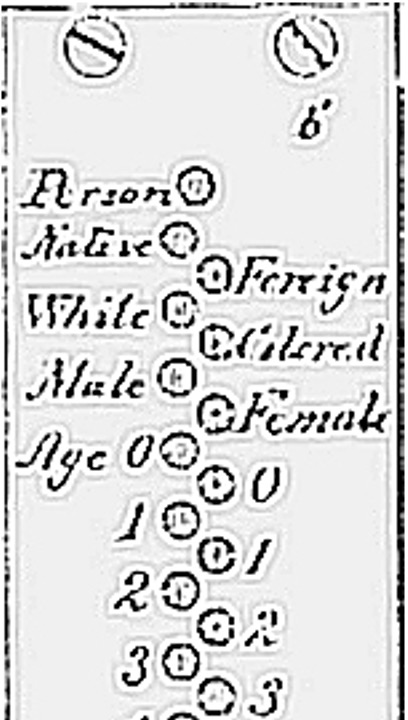 b'
Person
Native
Foreign
White
Colored
Male
Female
Age 0
0
1
1
2
2
3
3